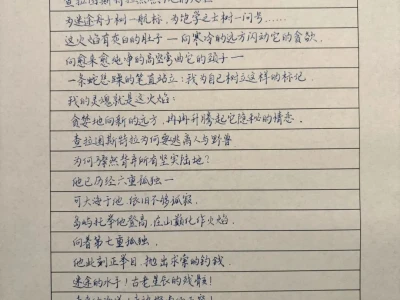 查拉图斯特拉点燃
为迷途舟子树一航标,为饱学之士树一问号……
这火焰有灰白的肚子——
向寒冷的远方闪动它的贪欲,
向愈来愈纯净的高空弯曲它的颈子——
一条蛇急躁的笔直站立:我为自己树立这样的标记.
我的灵魂就是这火焰:
贪婪地向新的远方,冉冉升腾起它隐秘的情志.
查拉图斯特拉为何要逃离人与野兽
为何猝然背弃所有坚实陆地?
他已历经六重孤独——
可大海于他,依旧不够孤寂.
岛屿托举他登高,在山巅化作火焰.
向着第七重孤独.
他此刻正举目,抛出求索的钓钩.
迷途的水手!古老星辰的残骸!